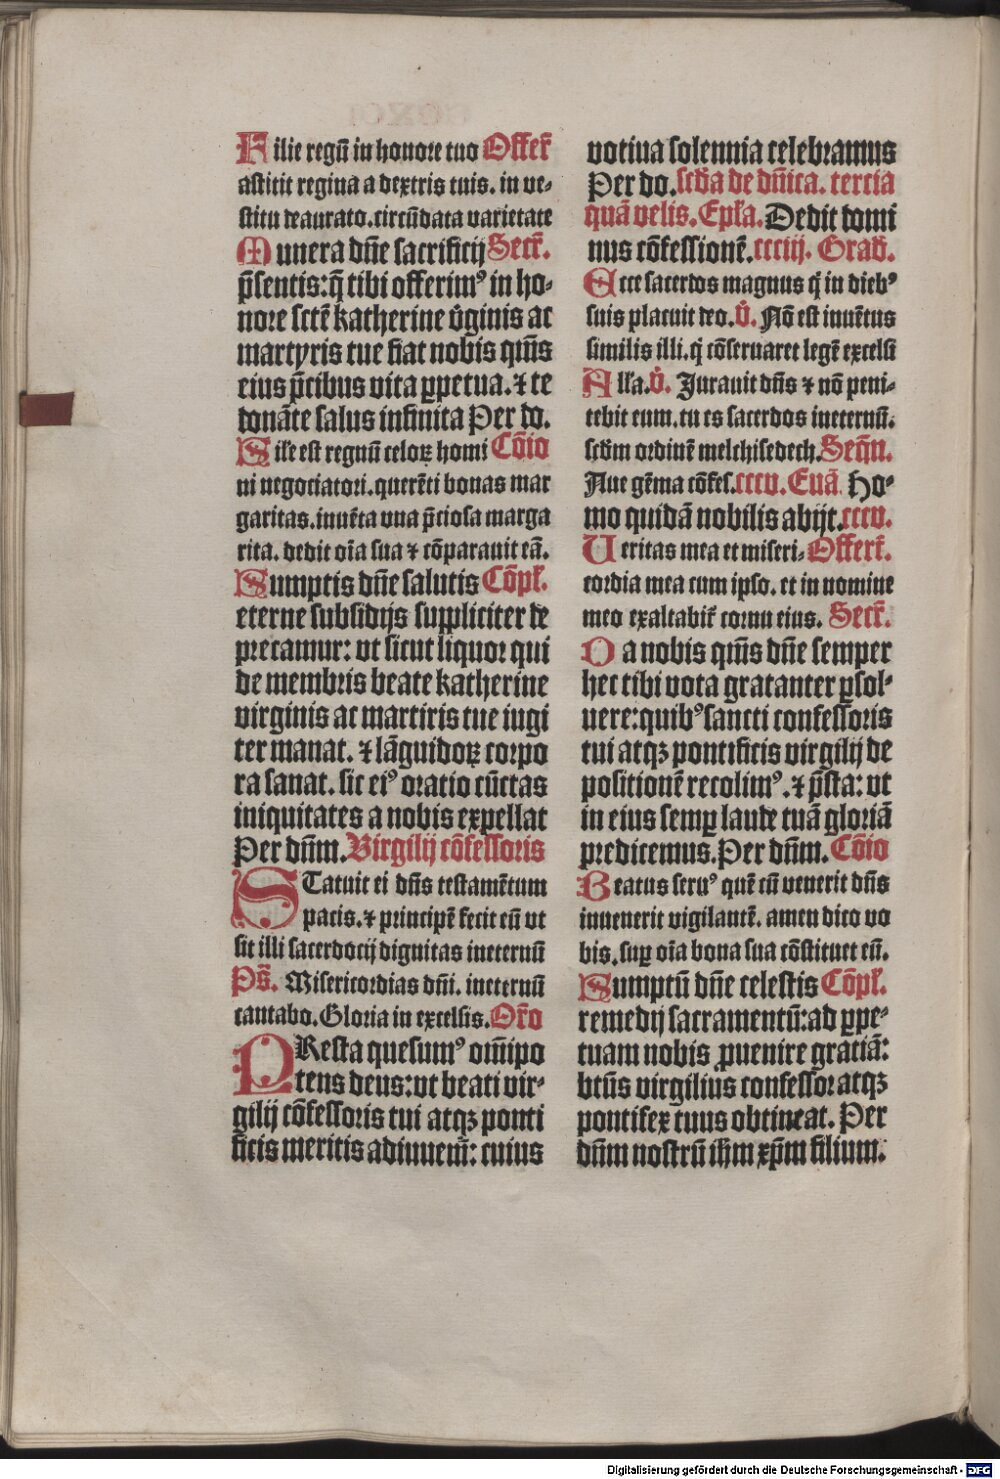 Filie regū in honore tuo Offer̄
astitit regina a dextris tuis. in ve-
stitu deaurato. circūdata varietate
Munera dn̄e sacrificij Secr̄.
p̄sentis: q̄ tibi offerimꝰ in ho-
nore scte̅ katherine v̇ginis ac
martyris tue fiat nobis qm̄s
eius p̄cibus vita ꝑpetua. ⁊ te
donāte salus infinita Per do.
Sil̄e est regnū celoꝝ homi Cōio
ni negociatori. querēti bonas mar
garitas. inuēta vna p̄ciosa marga
rita. dedit oīa sua ⁊ cōparauit eā.
Sumptis dn̄e salutis Cōpl̄.
eterne subsidijs suppliciter de
precamur: vt sicut liquor qui
de membris beate katherine
virginis ac martiris tue iugi
ter manat. ⁊ lāguidoꝝ corpo
ra sanat. sic eiꝰ oratio cūctas
iniquitates a nobis expellat
Per dn̄m. Virgilij cōfessoris
STatuit ei dn̄s testamētum
pacis. ⁊ principē fecit eū vt
sit illi sacerdocij dignitas ineternū
Ps̄. Misericordias dn̄i. ineternū
cantabo. Gloria in excelsis. Or̄o
PResta quesumꝰ om̄ipo
tens deus: vt beati vir-
gilij cōfessoris tui atqꝫ ponti
ficis meritis adiuuem̄: cuius
votiua solennia celebramus
Per do. scd̄a de dn̄ica. tercia
quā velis. Epl̄a. Dedit domi
nus cōfessionē. ccciij. Grad̄.
Ecce sacerdos magnus q̇ in diebꝰ
suis placuit deo. v̇. Nō est inuētus
similis illi. q̇ cōseruaret legē excelsi
All̄a. v̇. Jurauit dn̄s ⁊ nō peni-
tebit eum. tu es sacerdos ineternū.
scd̄m ordinē melchisedech. Seqn̄.
Aue gēma cōfes. cccv. Euā. Ho-
mo quidā nobilis abijt. cccv.
Veritas mea et miseri- Offert̄.
cordia mea cum ipso. et in nomine
meo exaltabit̄ cornu eius. Secr̄.
Da nobis qm̄s dn̄e semper
hec tibi vota gratanter ꝑsol-
uere: quibꝰ sancti confessoris
tui atqꝫ pontificis virgilij de
positionē recolimꝰ. ⁊ p̄sta: vt
in eius semꝑ laude tuā gloriā
predicemus. Per dn̄m. Cōio
Beatus seruꝰ quē cū venerit dn̄s
inuenerit vigilantē. amen dico vo
bis. suꝑ oīa bona sua cōstituet eū.
Sumptū dn̄e celestis Cōpl̄.
remedij sacramentū: ad ꝑpe-
tuam nobis ꝓuenire gratiā:
bt̄us virgilius confessor atqꝫ
pontifex tuus obtineat. Per
dn̄m nostrū ih̄m xp̄m filium.
Digitalisierung gefördert durch die Deutsche Forschungsgemeinschaft - DFG